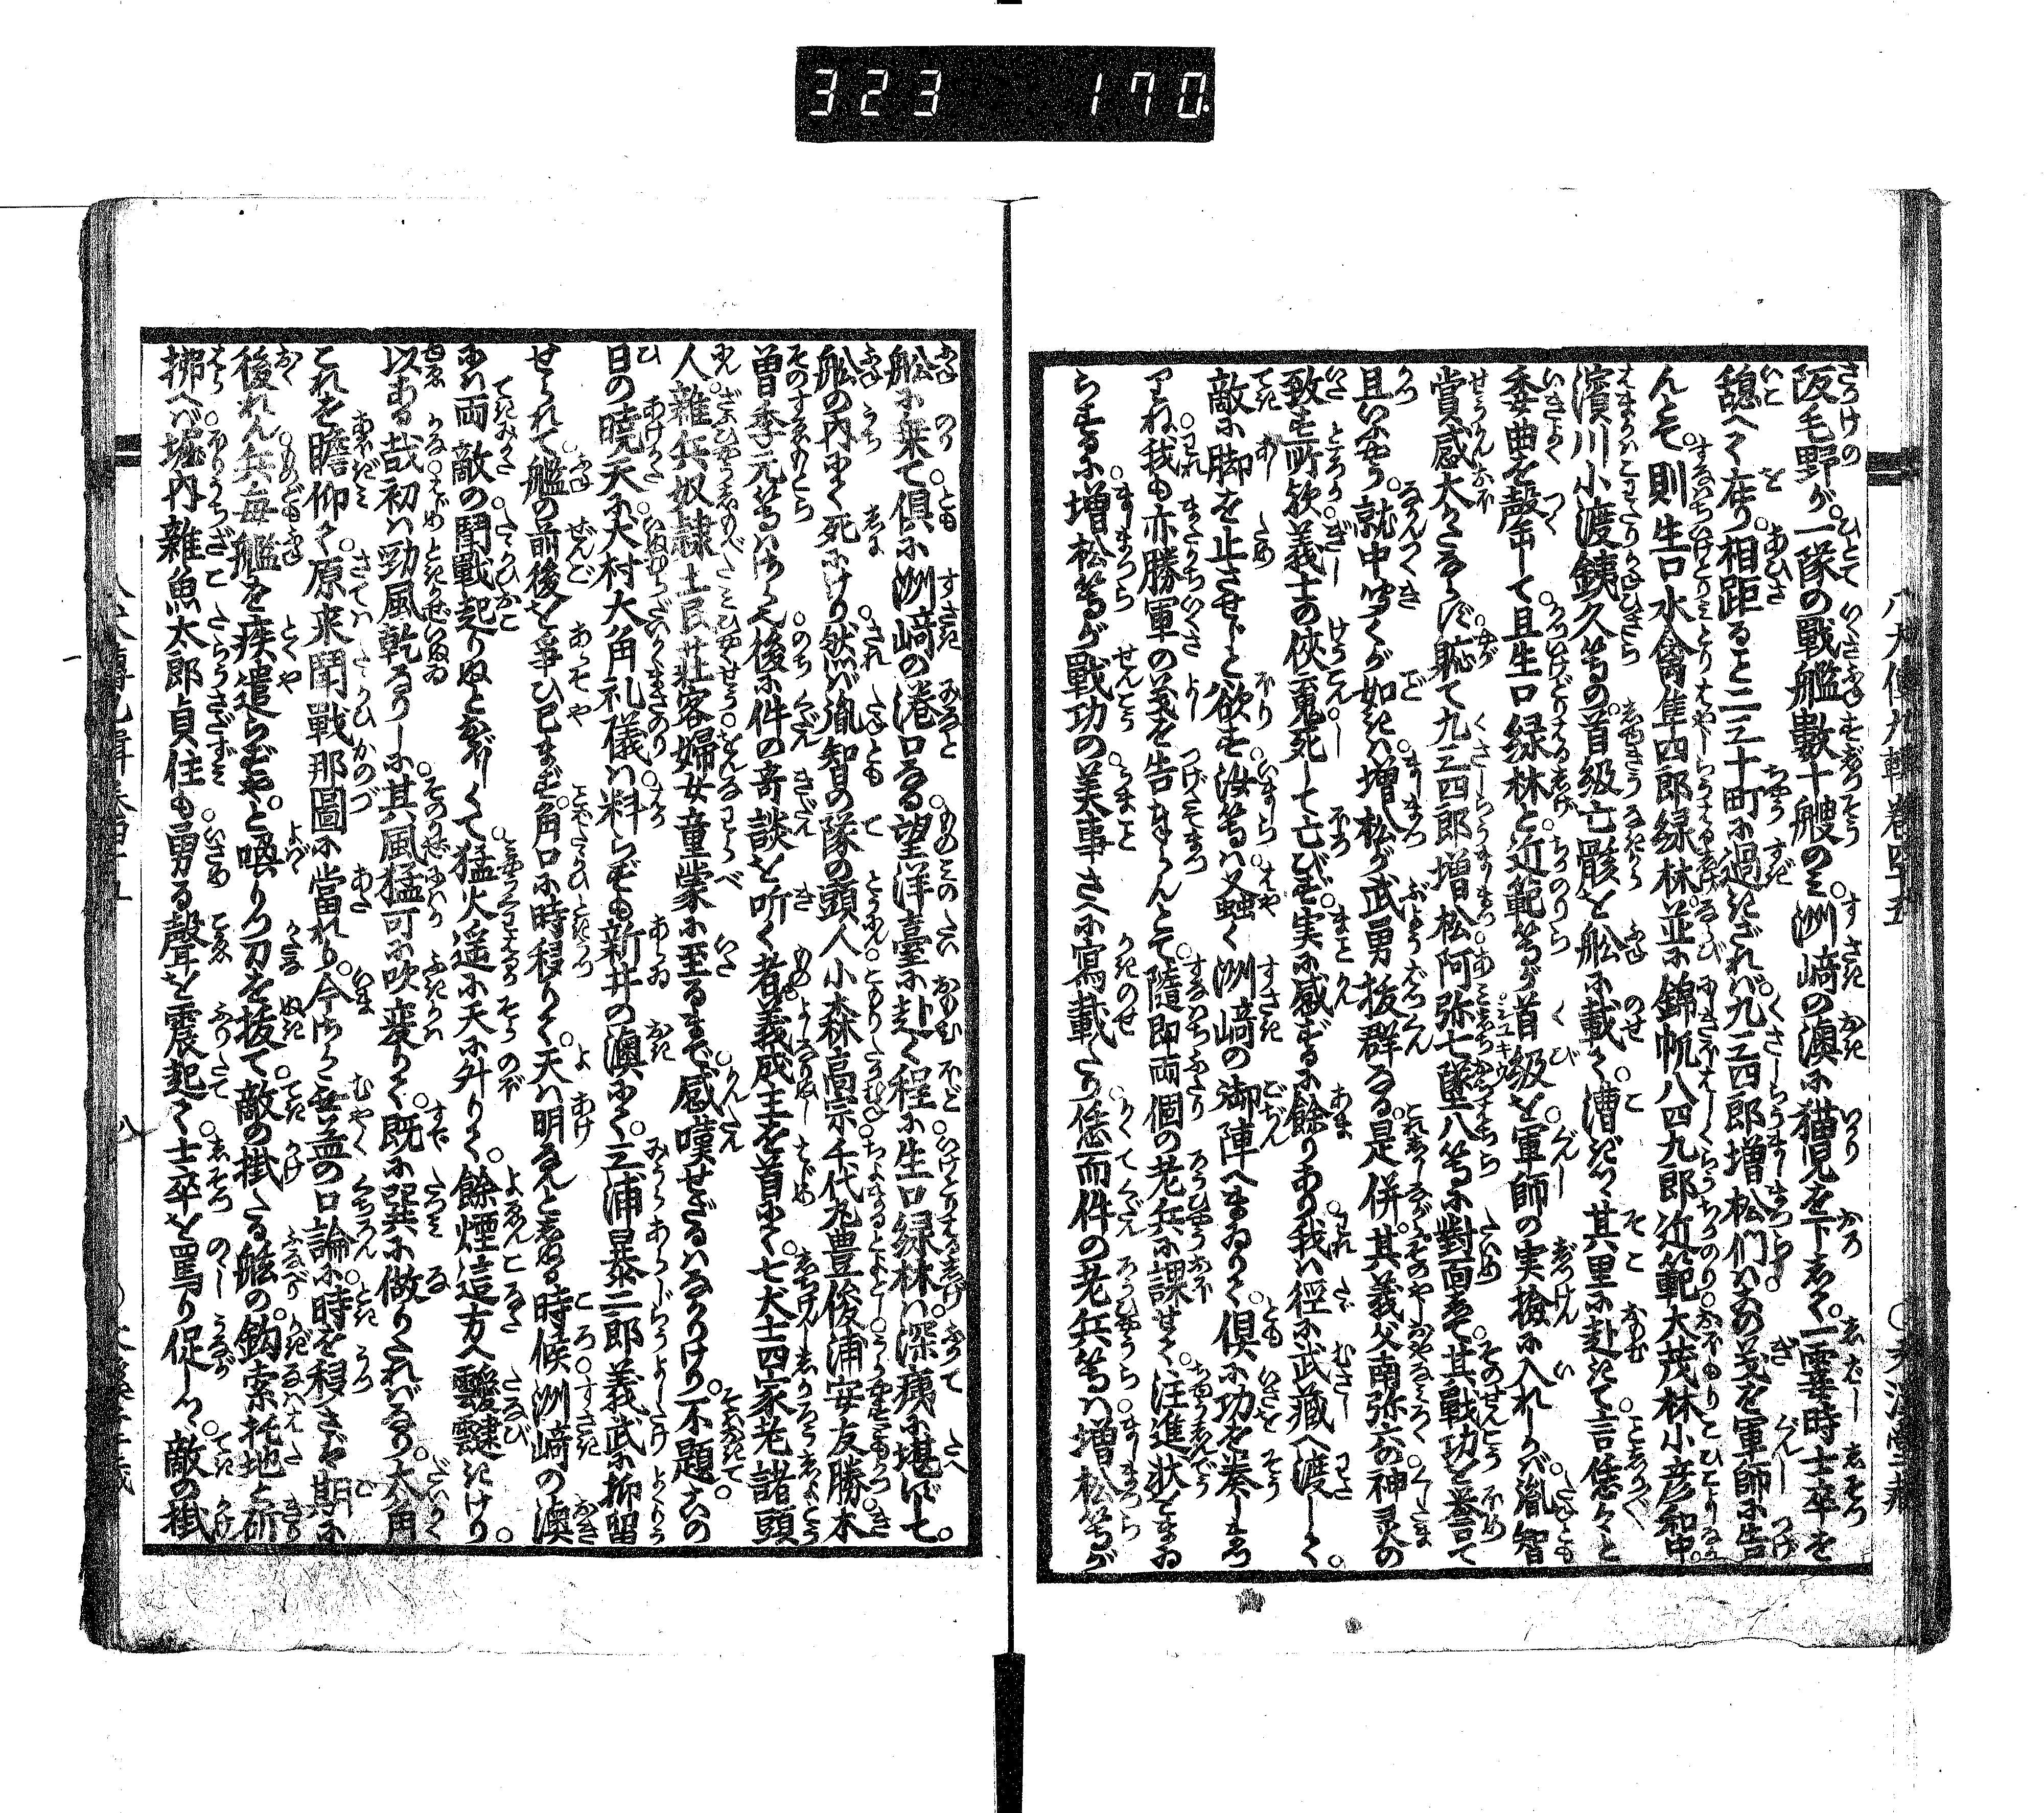 323 170
阪毛野が一隊の戦艦數十艘のミ洲﨑の澳に猫児を下しく一霎時士卒を
憩へて在り相距ると二三十町に過ぎざれバ九三四郎増松們ハあの義を軍師に告
んとて則生口水禽隼四郎緑林並に錦帆八四九郎近範大茂林小彦和中
濱川小渡銕久等の首級亡骸を舩に載て漕ぎつゝ其里に赴きて言恁々と
委曲を聲出して且生口緑林と近範等が首級を軍師の実撿に入れしかバ胤智
賞感大かたならず恥て九三四郎増松阿弥七墜八等に對面して其戦功を誉て
且いふやう就中聞くが如きハ増松が武勇抜群なる是併其義父南弥六の神灵の
致す所欤義士の侠魂死して亡びず実に感ずるに餘りあり我ハ徑に武藏へ渡して
敵に脚を止させじと欲す汝等ハ又蚤く洲﨑の御陣へまゐりて倶に功を奏しまつ
りね我も亦勝軍の義を告まうさんとて隨即両個の老兵に課せて注進状をまゐ
らするに増松等が戰功の美事さへに寫載たり恁而件の老兵等ハ増松等が
舩に乗て倶に洲﨑の港口なる望洋臺に赴く程に生口緑林ハ深痍に堪ずして
舩の内にて死にけり然バ胤智の隊の頭人小森高宗千代丸豊俊浦安友勝木
曽季元等ハ後に件の竒談を听く者義成主を首にて七犬士四家老諸頭
人雑兵奴隷土民荘客婦女童蒙に至るまで感嘆せざるハなかりけり不題あの
日の曉天に犬村大角礼儀ハ料らずも新井の澳にて三浦暴二郎義武に抑留
せられて艦の前後を爭ひ已まず角口に時移りて天ハ明なんとしぬる時候洲﨑の澳
にハ両敵の鬪戰起りぬとおぼしくて猛火遥に天に升りて餘煙這方へ靉靆きけり
以ある哉初ハ勁風乾なりしに其風猛可に吹変りて既に巽に做りたれバなり大角
これを瞻仰て原来鬪戰那圖に當れり今ハ無益の口論に時を移さバ期に
後れん兵毎艦を疾遣らずやと喚りつ刀を抜て敵の掛たる舩の鈎索托地と斫
拂へバ堀内雜魚太郎貞住も勇る聲を震起て士卒を罵り促しつゝ敵の掛